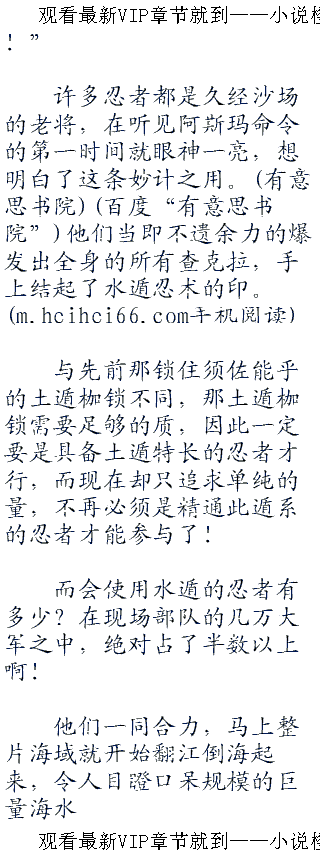 观看最新VIP章节就到——小说检
！”
许多忍者都是久经沙场
的老将，在听见阿斯玛命令
的第一时间就眼神一亮，想
明白了这条妙计之用。(有意
思书院)(百度“有意思书
院”)他们当即不遗余力的爆
发出全身的所有查克拉，手
上结起了水遁忍术的印。
(m.hcihci66.com手机阅读)
与先前那锁住须佐能乎
的土遁枷锁不同，那土遁枷
锁需要足够的质，因此一定
要是具备土遁特长的忍者才
行，而现在却只追求单纯的
量，不再必须是精通此遁系
的忍者才能参与了！
而会使用水遁的忍者有
多少？在现场部队的几万大
军之中，绝对占了半数以上
啊！
他们一同合力，马上整
片海域就开始翻江倒海起
来，令人目瞪口呆规模的巨
量海水
观看最新VIP章节就到——小说检